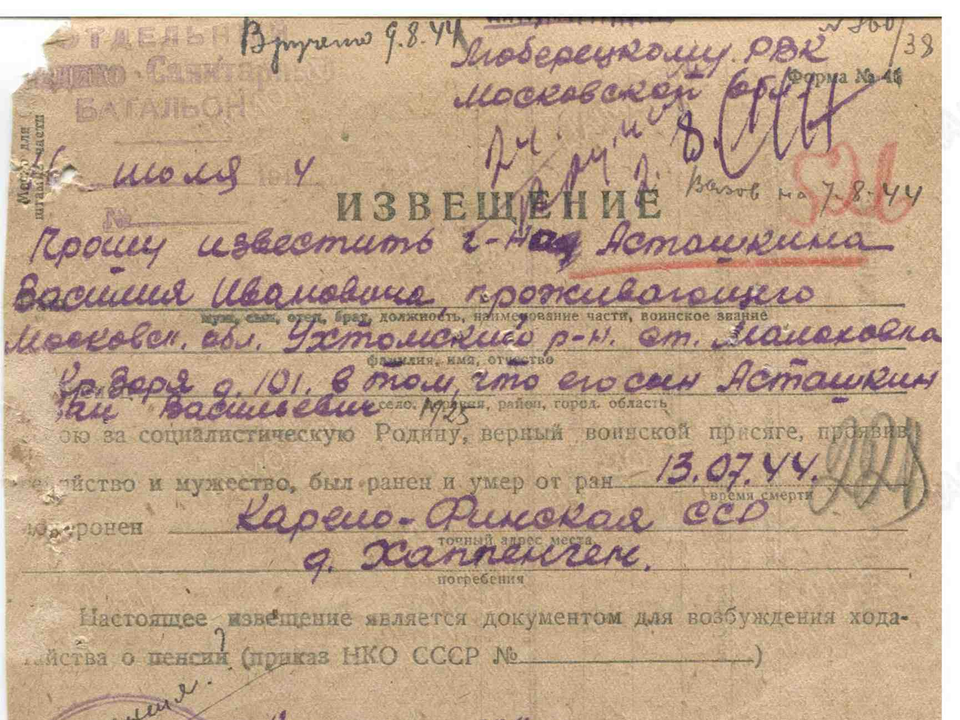 ОТДЕЛЬНЫЙ
Медико-Санитарный
БАТАЛЬОН
Вручено 9.8.44
Люберецкому РВК
Московской обл.
№ 360/38
Форма № 46
июля 194 4
№
Вызов на 7.8.44
526
ИЗВЕЩЕНИЕ
Прошу известить г-на Асташкина
Василия Ивановича, проживающего
муж, сын, отец, брат, должность, наименование части, воинское звание
Московск. обл. Ухтомский р-н. ст. Малаховка
фамилия, имя, отчество
Кр. Заря д. 101. в том, что его сын Асташкин
Васильевич 1925
село, деревня, район, город, область
бою за социалистическую Родину, верный воинской присяге, проявив
геройство и мужество, был ранен и умер от ран 13.07.44.
время смерти
похоронен Карело-Финская ССР
точный адрес места
д. Хаппенчен.
погребения
Настоящее извещение является документом для возбуждения хода-
тайства о пенсии (приказ НКО СССР № )